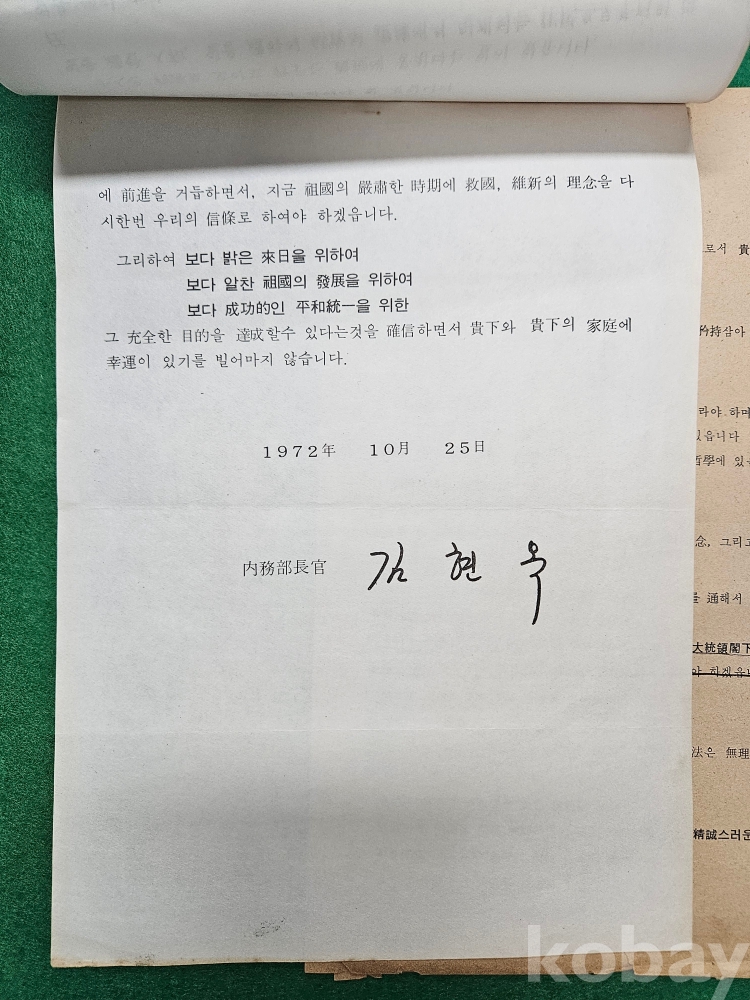 에 前進을 거듭하면서, 지금 祖國의 嚴肅한 時期에 救國, 維新의 理念을 다
시한번 우리의 信條로 하여야 하겠읍니다.
그리하여 보다 밝은 來日을 위하여
보다 알찬 祖國의 發展을 위하여
보다 成功的인 平和統一을 위한
그 充全한 目的을 達成할수 있다는것을 確信하면서 貴下와 貴下의 家庭에
幸運이 있기를 빌어마지 않습니다.
1972年 10月 25日
內務部長官 김 현 옥
로서 貴
矜持삼아
라야 하며
있읍니다
哲學에 있
念, 그리고
를 通해서
大統領閣下
야 하겠읍니
法은 無理
精誠스러운
kobay